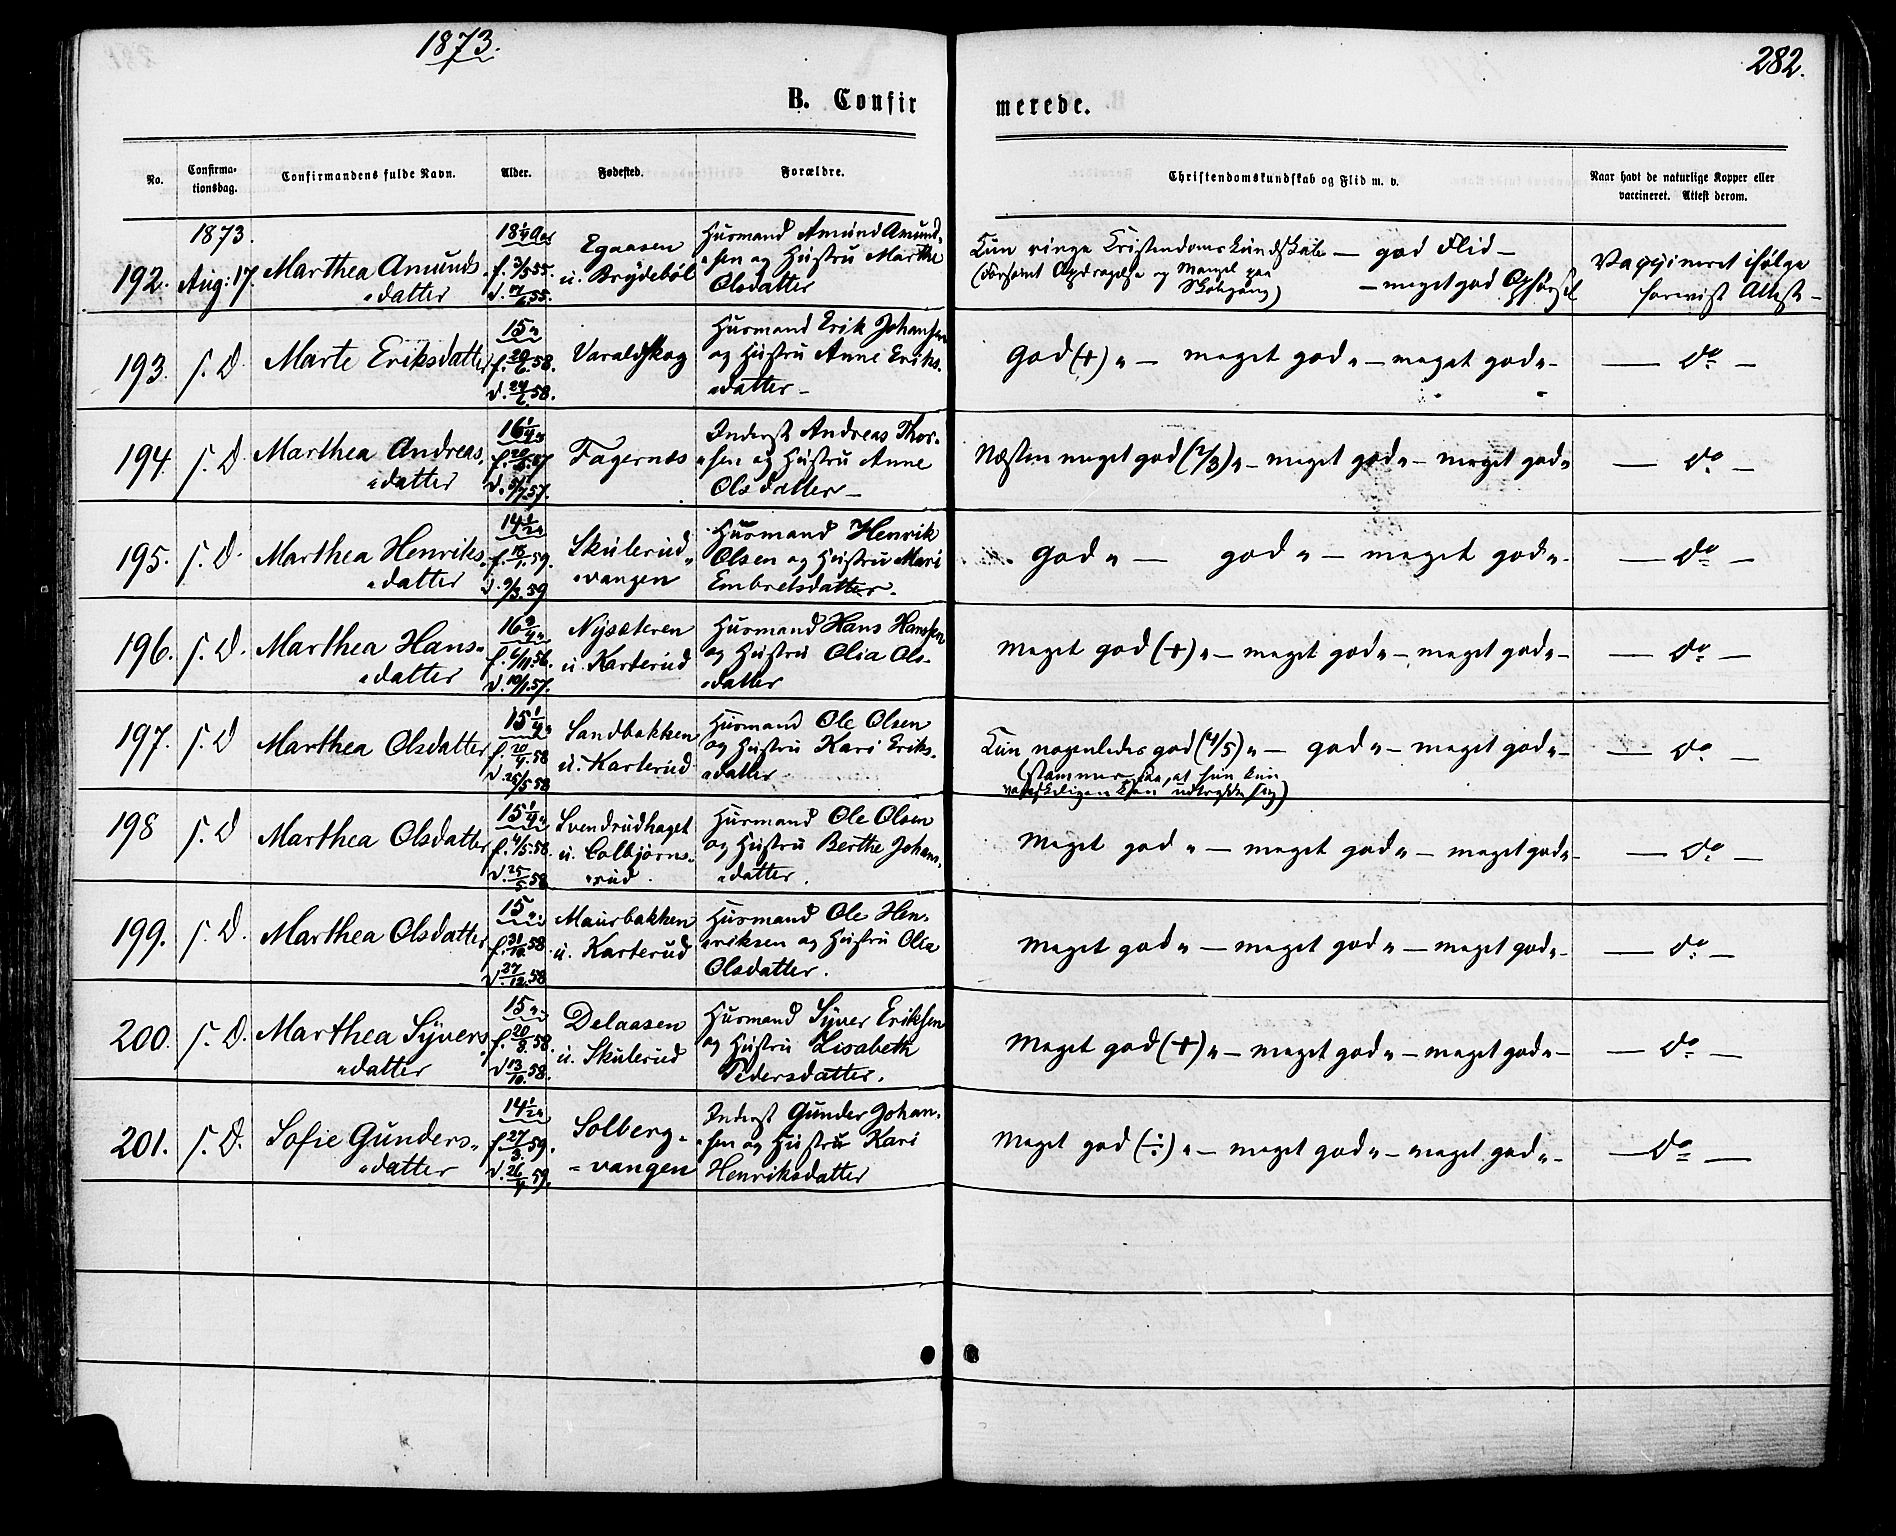 1873.
282.
B. Confir
merede.
No.
Confirma-
tionsdag.
Confirmandens fulde Navn.
Alder.
Fødested.
Forældre.
Christendomskundskab og Flid m. v.
Naar havt de naturlige Kopper eller
vaccineret. Attest derom.
1873.
192. Aug: 17. Marthea Amunds
datter
18 1/4 Aar
f. 3/5 55.
d. 55.
Egaasen
u. Brydebøl
Husmand Amund Amund-
sen og Hustru Marthe
Olsdatter
Kun ringe Kristendomskundskab — god Flid —
(forsømt Opdragelse og Mangel paa
Skolegang)
— meget god Opførsel
Vaccineret ifølge
forevist Attest —
193. s. D. Marte Eriksdatter
15 "
f. 20/6 58.
d. 24/6 58.
Varaldskog
Husmand Erik Johansen
og Hustru Anne Eriks-
datter —
God (+) " — meget god " — meget god " —
— do —
194. s. D. Marthea Andreas-
datter
16 1/4 "
57
57.
Fagernæs
Inderst Andreas Thor-
sen og Hustru Anne
Olsdatter —
Næsten meget god (2/3) " — meget god " — meget god "
— do —
195. s. D. Marthea Henriks-
datter
14 1/2 "
f. 59.
d. 9/3 59
Skulerud-
vangen
Husmand Henrik
Olsen og Hustru Mari
Embretsdatter.
God " — god " — meget god " —
— do —
196. s. D. Marthea Hans-
datter
16 3/4 "
f. 6/11 56.
d. 10/1 57.
Nysæteren
u. Karterud
Husmand Hans Hansen
og Hustru Olia Ols-
datter
Meget god (+) " — meget god " — meget god " —
— do —
197. s. D Marthea Olsdatter
15 1/4 "
f. 20/4 58
d. 25/5 58
Sandbakken
u. Karterud
Husmand Ole Olsen
og Hustru Kari Eriks-
datter
Kun nogenledes god (4/5) " — god " — meget god " —
(stammer saa, at hun kun
vanskeligen kan udtrykke sig)
— do —
198 s. D Marthea Olsdatter
15 1/4 "
f. 4/5 58.
d. 25/5 58
Svendrudhaget
u. Colbjørns-
rud.
Husmand Ole Olsen
og Hustru Berthe Johans-
datter.
Meget god " — meget god " — meget god " —
— do —
199. s. D. Marthea Olsdatter
15 "
f. 31/10 58.
d. 27/12 58
Maurbakken
u. Karterud
Husmand Ole Hen-
riksen og Hustru Olia
Olsdatter.
Meget god " — meget god " — meget god " —
— do —
200. s. D. Marthea Syvers
datter
15 "
f. 20/8 58.
d. 13/10 58.
Delaasen
u. Skulerud
Husmand Syver Eriksen
og Hustru Lisabeth
Pedersdatter.
Meget god (+) " — meget god " — meget god " —
— do —
201. s. D. Sofie Gunders-
datter
14 1/2 "
f. 27/3 59.
d. 26/4 59.
Solberg-
vangen
Inderst Gunder Johan-
sen og Hustru Kari
Henriksdatter
Meget god (÷) " — meget god " — meget god " —
— do —